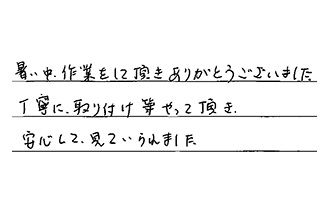 暑い中、作業をして頂きありがとうございました
丁寧に、取り付け等やって頂き、
安心して、見ていられました